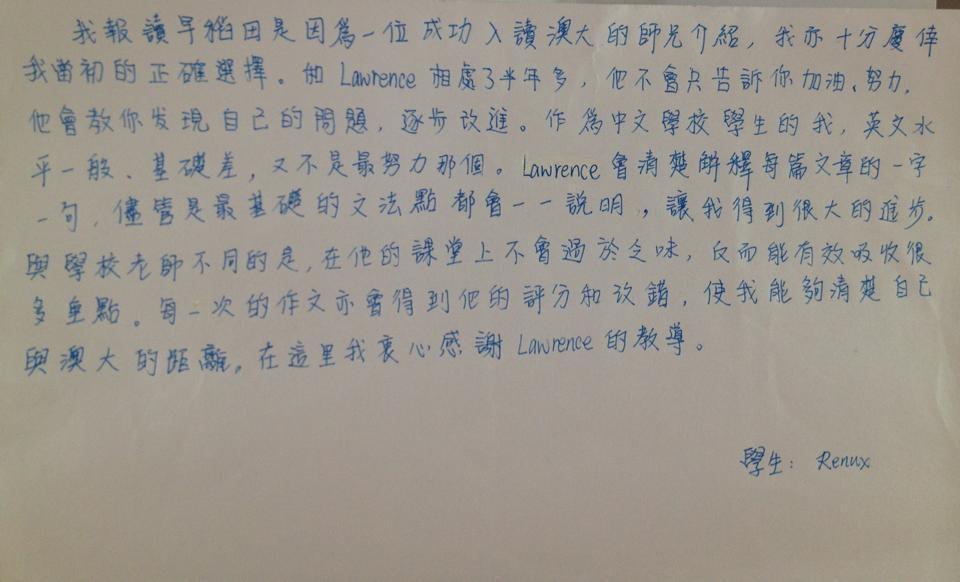 我報讀早稻田是因為一位成功入讀澳大的師兄介紹，我亦十分慶倖
我當初的正確選擇。和Lawrence相處了半年多，他不會只告訴你加油、努力，
他會教你发現自己的問題，逐步改進。作為中文學校學生的我，英文水
平一般、基礎差，又不是最努力那個。Lawrence會清楚解釋每篇文章的一字
一句，儘管是最基礎的文法點都會一一說明，讓我得到很大的進步。
與學校老師不同的是，在他的課堂上不會過於乏味，反而能有效吸收很
多重點。每一次的作文亦會得到他的評分和改錯，使我能夠清楚自己
與澳大的距離。在這里我衷心感謝Lawrence的教導。
學生：Renux